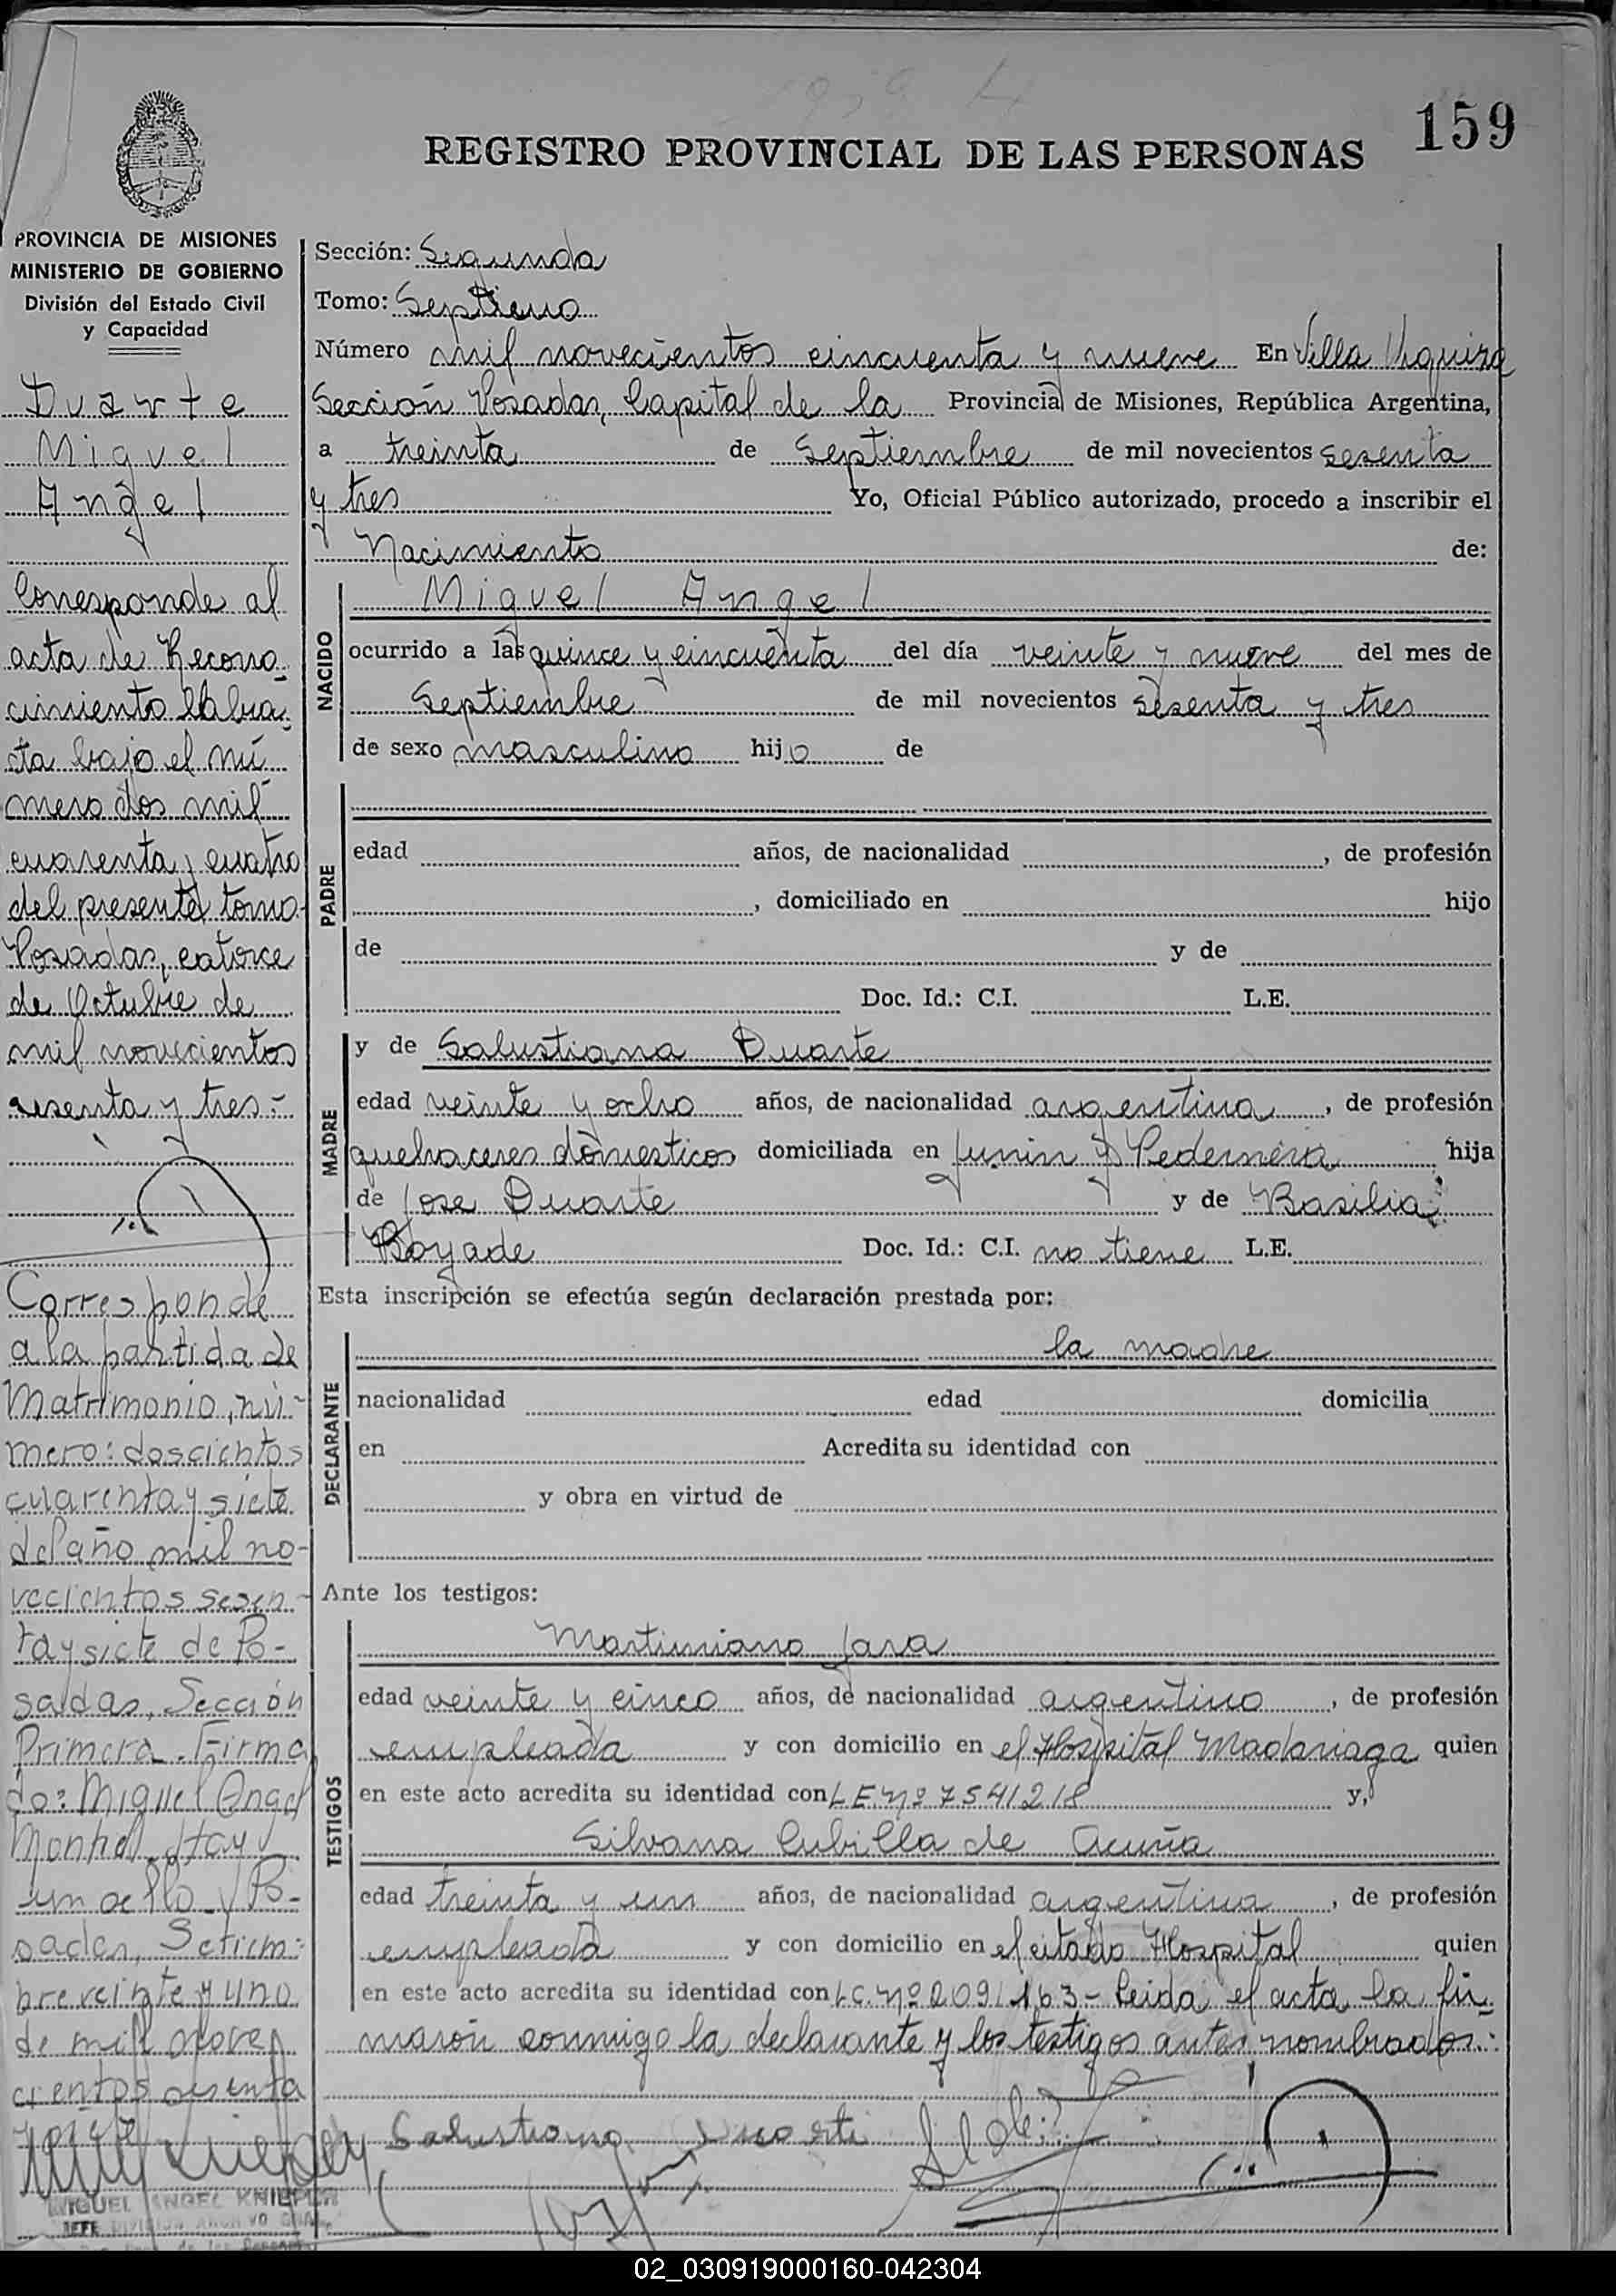 159
REGISTRO PROVINCIAL DE LAS PERSONAS
PROVINCIA DE MISIONES
MINISTERIO DE GOBIERNO
División del Estado Civil
y Capacidad
Duarte
Miguel
Angel
Corresponde al
acta de Recono
cimiento labra
da bajo el nú
mero dos mil
cuarenta y cuatro
del presente tomo
Posadas, catorce
de Octubre de
mil novecientos
sesenta y tres.-
Corresponde
a la partida de
Matrimonio, nú-
mero: doscientos
cuarenta y siete
del año mil no-
vecientos sesen-
ta y siete de Po-
sadas, Sección
Primera. Firma
do: Miguel Angel
Montiel. Hay
un sello. Po-
sadas, Setiem-
bre veinte y uno
de mil nove
cientos sesenta
MIGUEL ANGEL KNIEPER
JEFE DIVISION ARCHIVO GRAL.
Sección: Segunda
Tomo: Septimo
Número mil novecientos cincuenta y nueve En Villa Urquiza
Sección Posadas, Capital de la Provincia de Misiones, República Argentina,
a treinta de Septiembre de mil novecientos sesenta
y tres Yo, Oficial Público autorizado, procedo a inscribir el
Nacimiento de:
NACIDO
Miguel Angel
ocurrido a las quince y cincuenta del día veinte y nueve del mes de
Septiembre de mil novecientos sesenta y tres
de sexo masculino hijo de
PADRE
edad años, de nacionalidad , de profesión
, domiciliado en hijo
de y de
Doc. Id.: C.I. L.E.
MADRE
y de Salustiana Duarte
edad veinte y ocho años, de nacionalidad argentina, de profesión
quehaceres domesticos domiciliada en Junin y Pedernera hija
de Jose Duarte y de Basilia
Boyade Doc. Id.: C.I. no tiene L.E.
Esta inscripción se efectúa según declaración prestada por:
DECLARANTE
la madre
nacionalidad edad domicilia
en Acredita su identidad con
y obra en virtud de
Ante los testigos:
TESTIGOS
Martiniano Jara
edad veinte y cinco años, de nacionalidad argentino, de profesión
empleada y con domicilio en el Hospital Madariaga quien
en este acto acredita su identidad con L.E. nº 7541218 y,
Silvana Cubilla de Acuña
edad treinta y un años, de nacionalidad argentina, de profesión
empleada y con domicilio en el citado Hospital quien
en este acto acredita su identidad con L.C. nº 2091163 - Leida el acta la fir
maron conmigo la declarante y los testigos antes nombrados.-
Salustiana Duarte
02_030919000160-042304